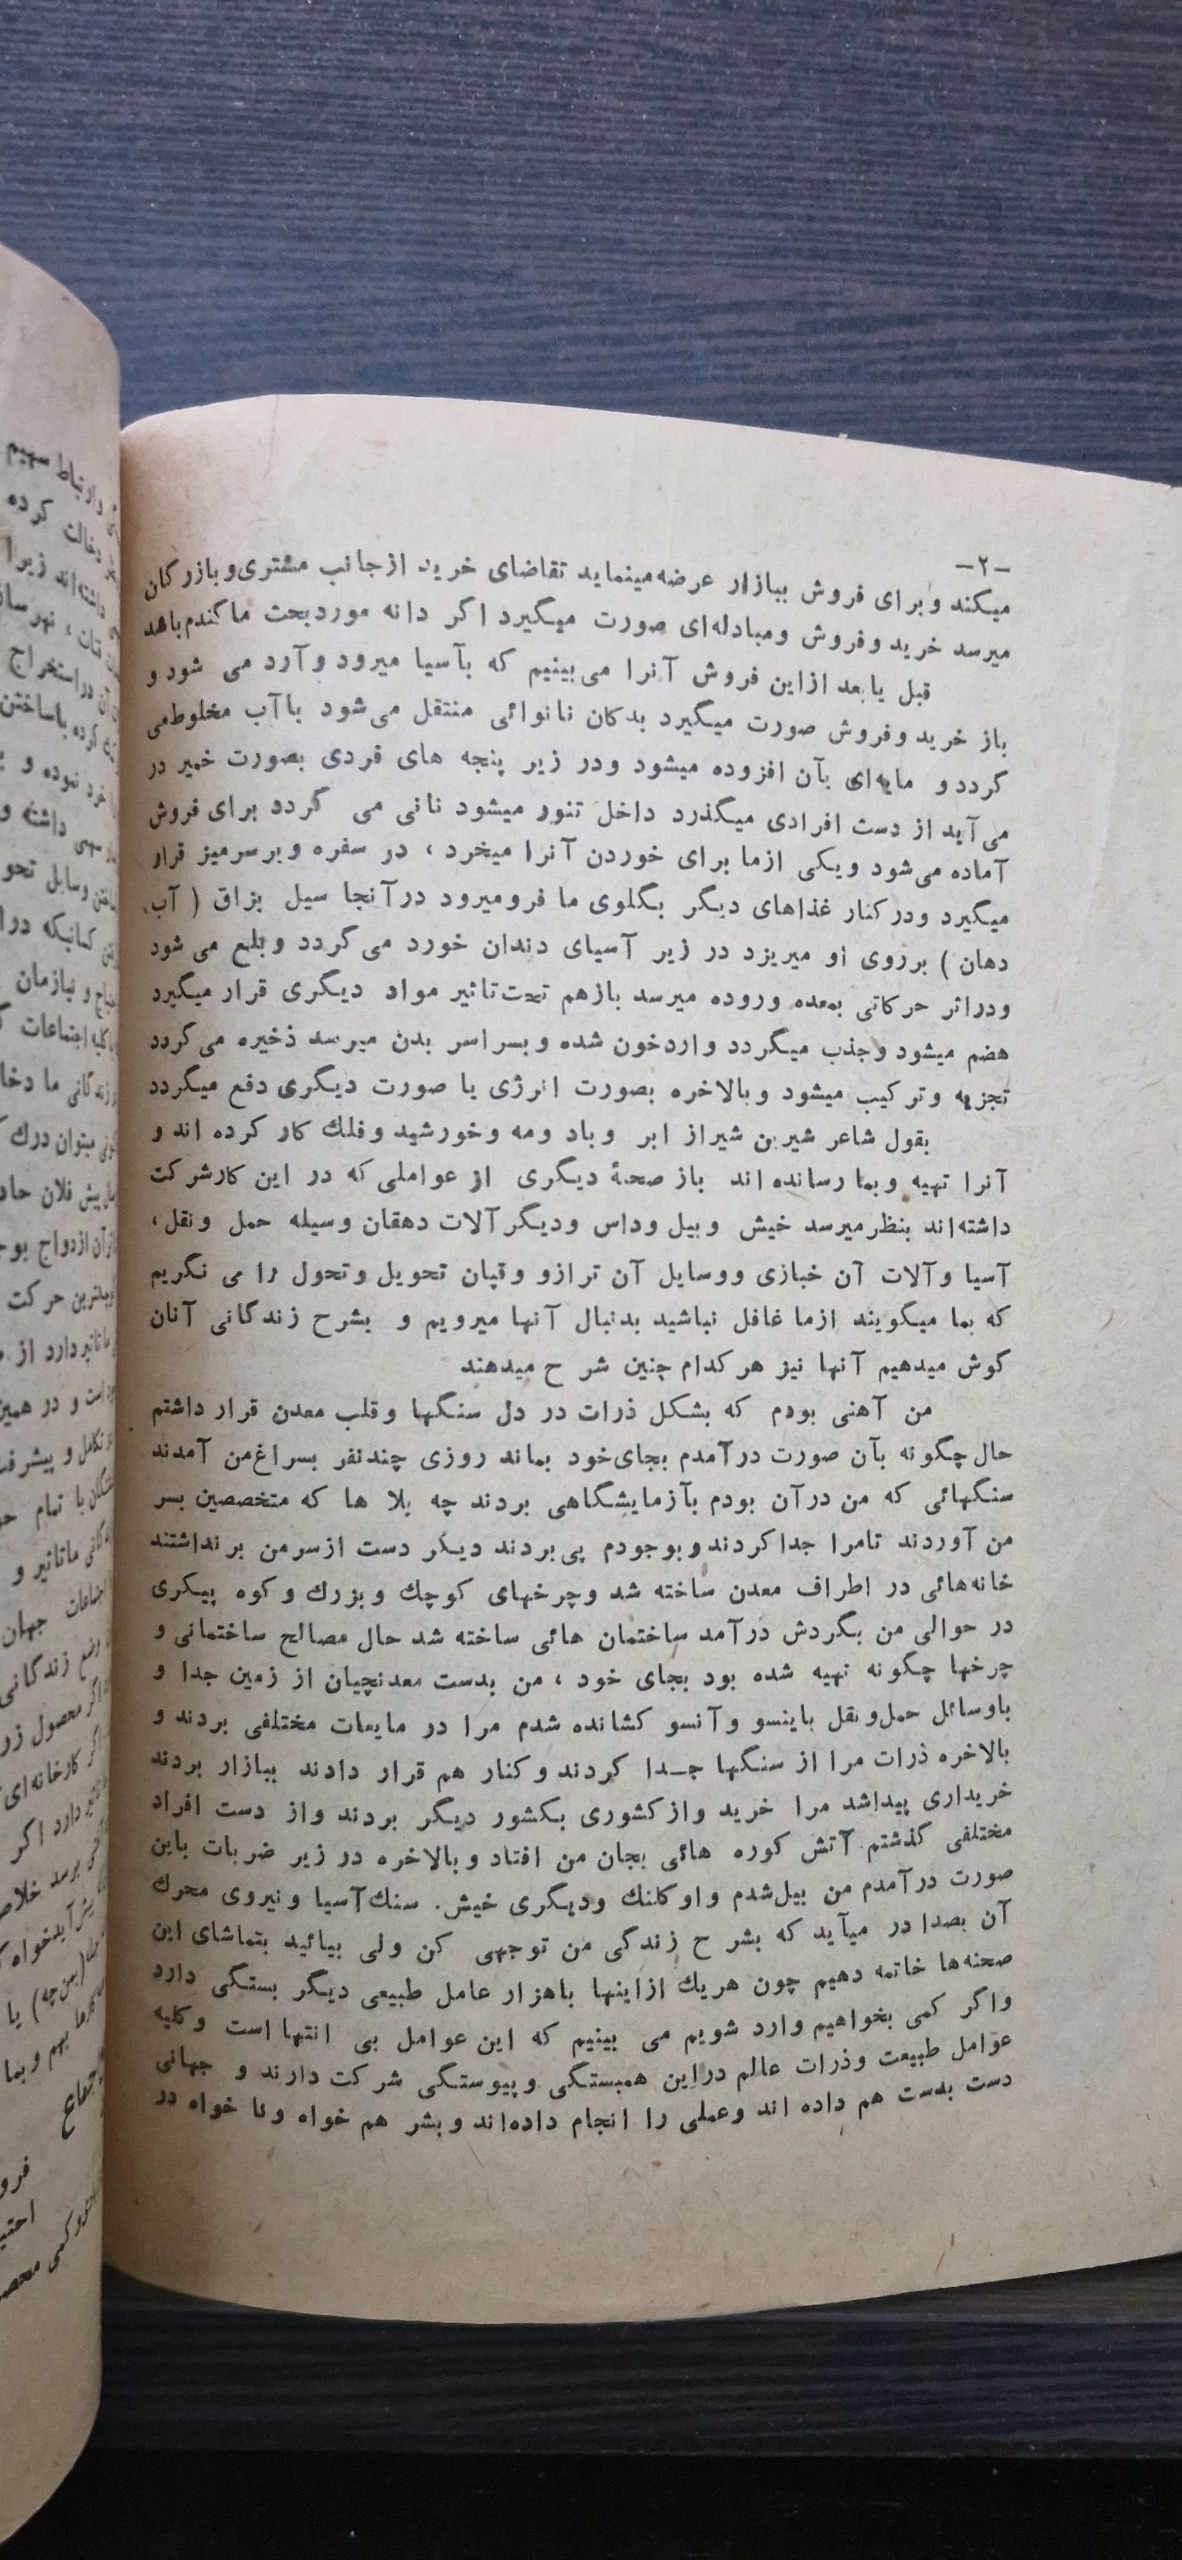 -۲-
میکند و برای فروش ببازار عرضه مینماید تقاضای خرید از جانب مشتری و بازرگان
میرسد خرید و فروش و مبادله‌ای صورت میگیرد اگر دانه مورد بحث ما گندم باشد
قبل یا بعد از این فروش آنرا می‌بینیم که بآسیا میرود و آرد می شود و
باز خرید و فروش صورت میگیرد بدکان نانوائی منتقل می‌شود با آب مخلوط می
گردد و مایه‌ای بآن افزوده میشود و در زیر پنجه های فردی بصورت خمیر در
می‌آید از دست افرادی میگذرد داخل تنور میشود نانی می گردد برای فروش
آماده می‌شود و یکی از ما برای خوردن آنرا میخرد ، در سفره و بر سر میز قرار
میگیرد و در کنار غذاهای دیگر بگلوی ما فرو میرود در آنجا سیل بزاق ( آب
دهان ) بر روی او میریزد در زیر آسیای دندان خورد می‌گردد و بلع می شود
و در اثر حرکاتی بمعده و روده میرسد باز هم تحت تاثیر مواد دیگری قرار میگیرد
هضم میشود و جذب میگردد وارد خون شده و بسراسر بدن میرسد ذخیره می‌گردد
تجزیه و ترکیب میشود و بالاخره بصورت انرژی یا صورت دیگری دفع میگردد
بقول شاعر شیرین شیراز ابر و باد و مه و خورشید و فلك کار کرده اند و
آنرا تهیه و بما رسانده اند باز صحنهٔ دیگری از عواملی که در این کار شرکت
داشته‌اند بنظر میرسد خیش و بیل و داس و دیگر آلات دهقان وسیله حمل و نقل ،
آسیا و آلات آن خبازی و وسایل آن ترازو و قپان تحویل و تحول را می نگریم
که بما میگویند از ما غافل نباشید بدنبال آنها میرویم و بشرح زندگانی آنان
گوش میدهیم آنها نیز هر کدام چنین شر ح میدهند
من آهنی بودم که بشکل ذرات در دل سنگها و قلب معدن قرار داشتم
حال چگونه بآن صورت درآمدم بجای خود بماند روزی چند نفر بسراغ من آمدند
سنگهائی که من در آن بودم بآزمایشگاهی بردند چه بلا ها که متخصصین بسر
من آوردند تا مرا جدا کردند و بوجودم پی بردند دیگر دست از سر من برنداشتند
خانه‌هائی در اطراف معدن ساخته شد و چرخهای کوچك و بزرك و کوه پیکری
در حوالی من بگردش درآمد ساختمان هائی ساخته شد حال مصالح ساختمانی و
چرخها چگونه تهیه شده بود بجای خود ، من بدست معدنچیان از زمین جدا و
با وسائل حمل و نقل باینسو و آنسو کشانده شدم مرا در مایعات مختلفی بردند و
بالاخره ذرات مرا از سنگها جـدا کردند و کنار هم قرار دادند ببازار بردند
خریداری پیدا شد مرا خرید و از کشوری بکشور دیگر بردند و از دست افراد
مختلفی گذشتم آتش کوره هائی بجان من افتاد و بالاخره در زیر ضربات باین
صورت درآمدم من بیل شدم و او کلنك و دیگری خیش. سنك آسیا و نیروی محرك
آن بصدا در میآید که بشر ح زندگی من توجهی کن ولی بیائید بتماشای این
صحنه‌ها خاتمه دهیم چون هر یك از اینها با هزار عامل طبیعی دیگر بستگی دارد
و اگر کمی بخواهیم وارد شویم می بینیم که این عوامل بی انتها است و کلیه
عوامل طبیعت و ذرات عالم در این همبستگی و پیوستگی شرکت دارند و جهانی
دست بدست هم داده اند و عملی را انجام داده‌اند و بشر هم خواه و نا خواه در